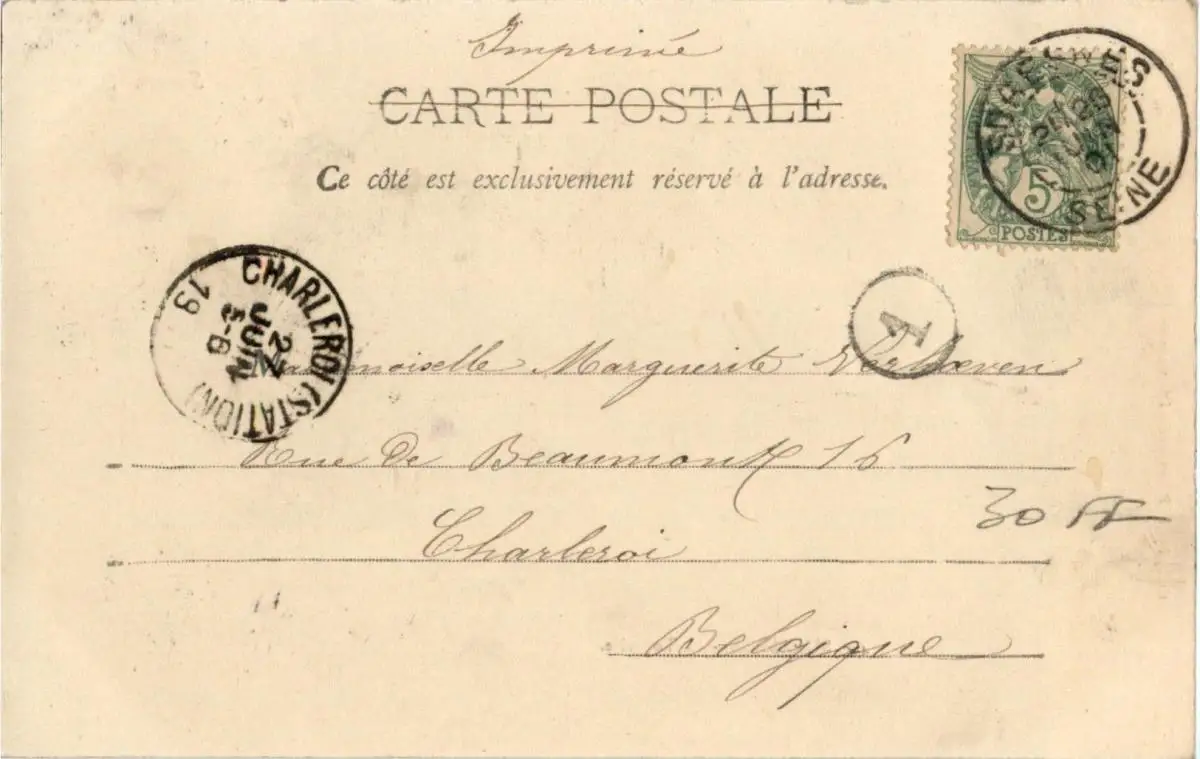 Imprimé
CARTE POSTALE
Ce côté est exclusivement réservé à l'adresse.
SURESNES
SEINE
5
POSTES
A
CHARLEROI (STATION)
JUIN
19
Mademoiselle Marguerite Verhaeven
Rue de Beaumont 16
Charleroi
30 FF
Belgique